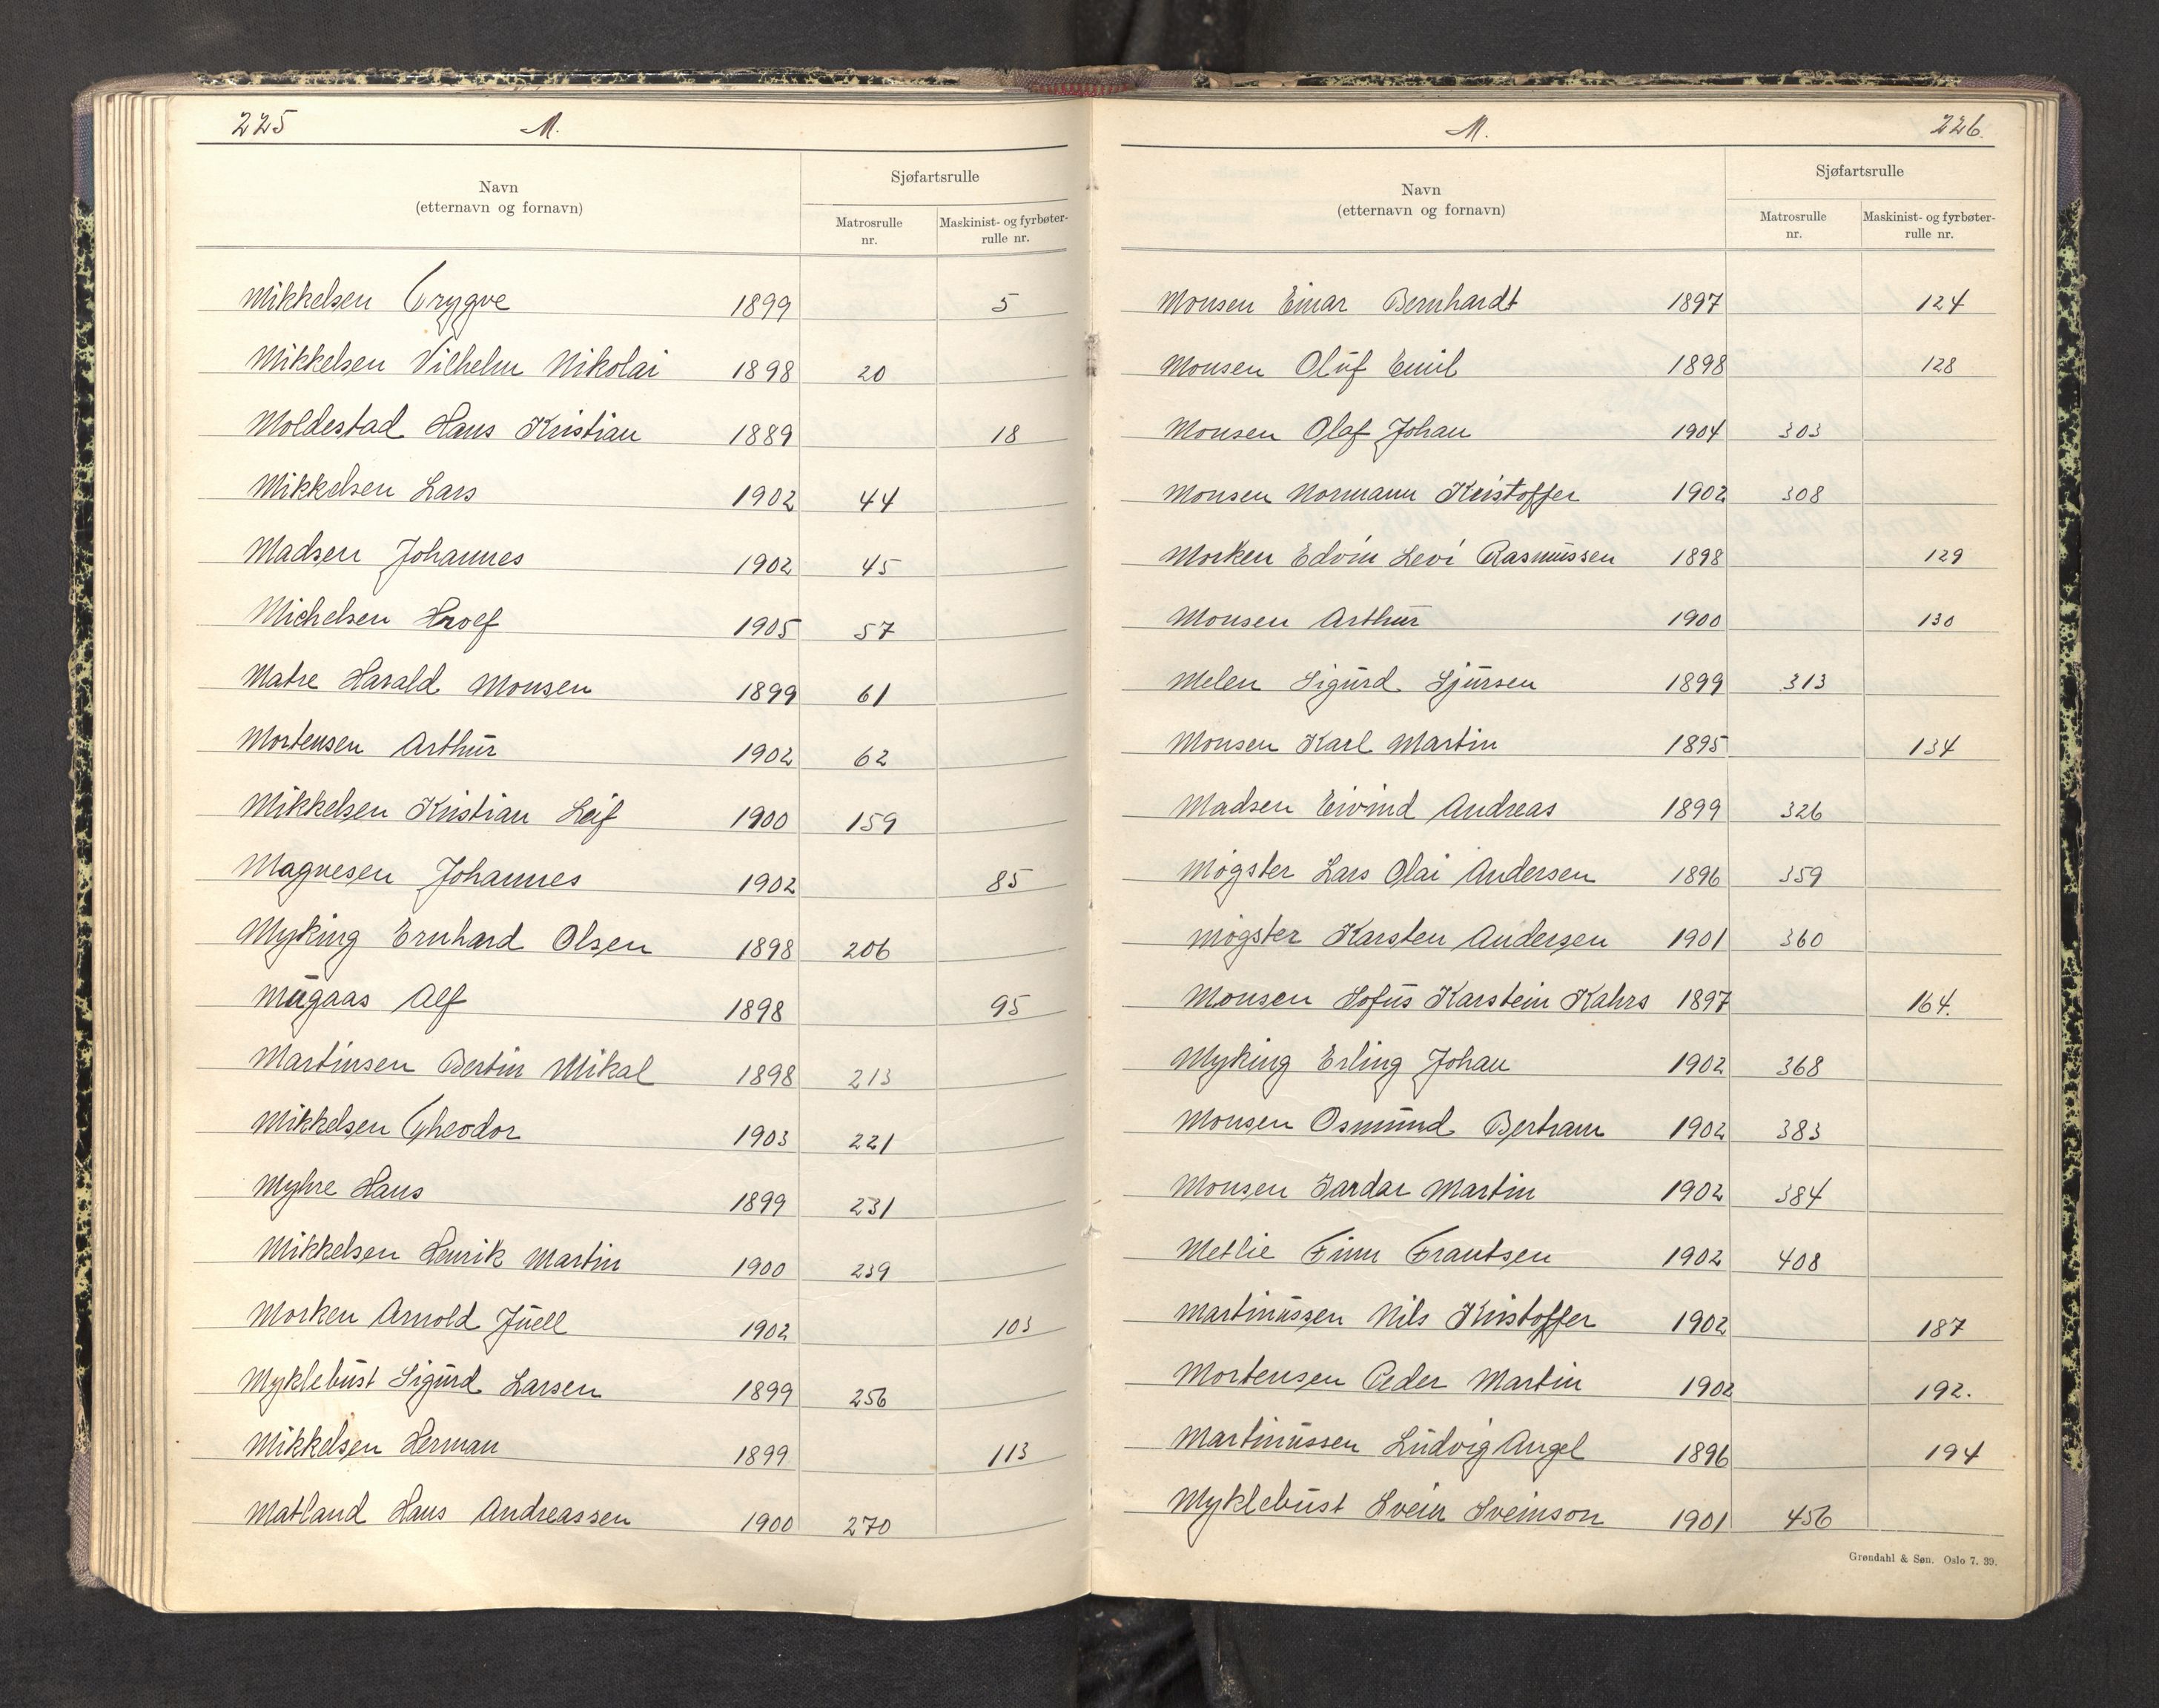 225 M.
Navn
(etternavn og fornavn)
Sjøfartsrulle
Matrosrulle
nr.
Maskinist- og fyrbøter-
rulle nr.
Mikkelsen Trygve 1899 5
Mikkelsen Vilhelm Nikolai 1898 20
Moldestad Hans Kristian 1889 18
Mikkelsen Lars 1902 44
Madsen Johannes 1902 45
Michelsen Hrolf 1905 57
Matre Harald Monsen 1899 61
Mortensen Arthur 1902 62
Mikkelsen Kristian Leif 1900 159
Magnesen Johannes 1902 85
Myking Ernhard Olsen 1898 206
Mugaas Alf 1898 95
Martinsen Bertin Mikal 1898 213
Mikkelsen Theodor 1903 221
Myhre Hans 1899 231
Mikkelsen Henrik Martin 1900 239
Morken Arnold Juell 1902 103
Myklebust Sigurd Larsen 1899 256
Mikkelsen Herman 1899 113
Matland Hans Andreassen 1900 270
M. 226.
Navn
(etternavn og fornavn)
Sjøfartsrulle
Matrosrulle
nr.
Maskinist- og fyrbøter-
rulle nr.
Monsen Einar Bernhardt 1897 124
Monsen Oluf Emil 1898 128
Monsen Olaf Johan 1904 303
Monsen Normann Kristoffer 1902 308
Morken Edvin Levi Rasmussen 1898 129
Monsen Arthur 1900 130
Melen Sigurd Sjursen 1899 313
Monsen Karl Martin 1895 134
Madsen Eivind Andreas 1899 326
Møgster Lars Olai Andersen 1896 359
Møgster Karsten Andersen 1901 360
Monsen Sofus Karstein Kahrs 1897 164.
Myking Erling Johan 1902 368
Monsen Osmund Bertram 1902 383
Monsen Gardar Martin 1902 384
Metlie Finn Frantsen 1902 408
Martinussen Nils Kristoffer 1902 187
Mortensen Peder Martin 1902 192.
Martinussen Ludvig Angel 1896 194
Myklebust Svein Sveinson 1901 456
Grøndahl & Søn. Oslo 7. 39.